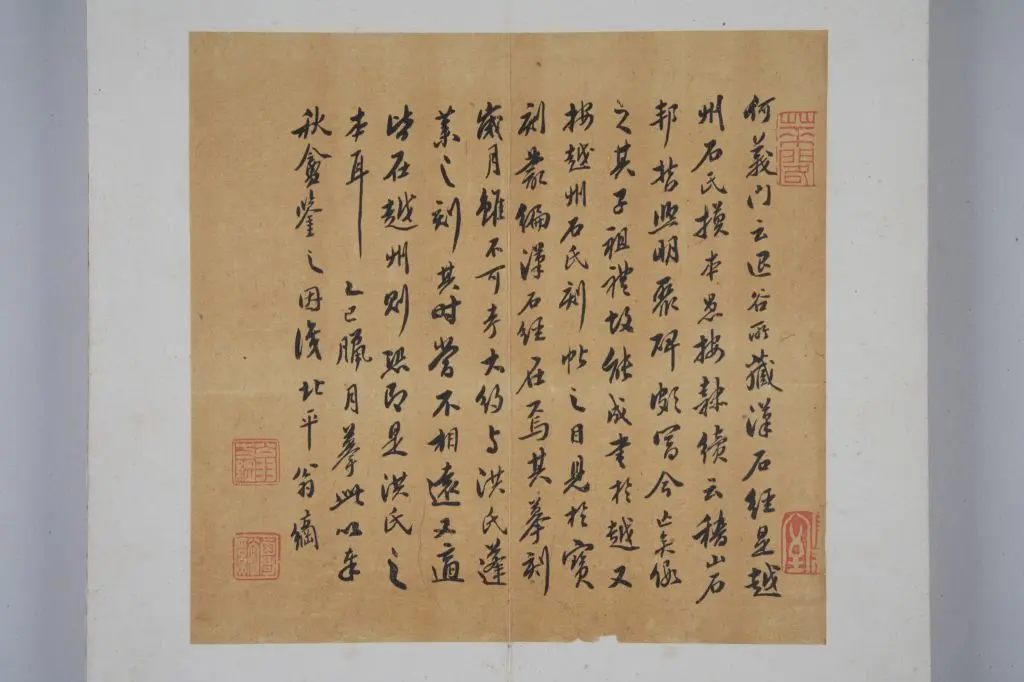 何義門云退谷所藏漢石經是越
州石氏摸本愚按隸續云稽山石
邦哲熙明聚碑頗富今亡矣假
之其子祖禮故能成書於越又
按越州石氏刻帖之目見於寶
刻叢編漢石經在焉其摹刻
歲月雖不可考大約與洪氏蓬
萊之刻其時當不相遠又適
皆在越州則恐即是洪氏之
本耳 乙巳臘月摹此以奉
秋盦鑒之因識北平翁方綱